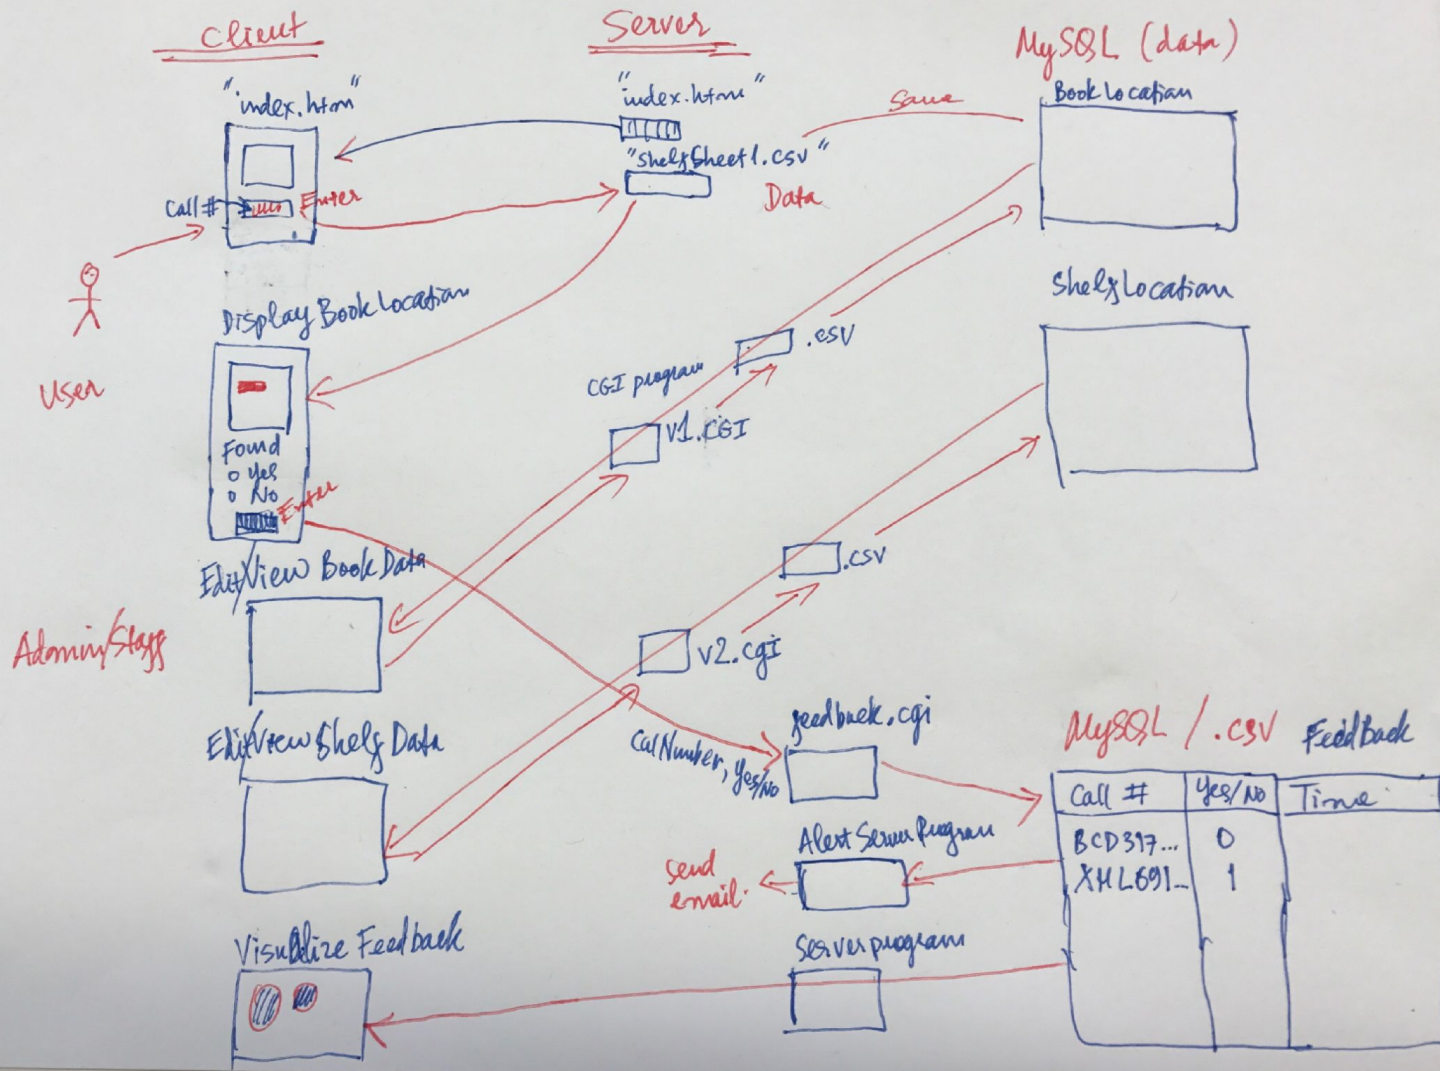 Client
Server
MySQL (data)
"index.htm"
"index.htm"
Same
BookLocation
"ShelfSheet1.csv"
Call #
Enter
Data
Display Book Location
ShelfLocation
User
.csv
CGI program
v1.CGI
Found
o Yes
o No
Enter
Edit/View Book Data
.csv
Admin/Staff
v2.cgi
Edit/View Shelf Data
CalNumber, Yes/No
feedback.cgi
MySQL / .csv FeedBack
Call # Yes/No Time
Alert Server Program
BCD317... 0
XML691... 1
Send
email.
Visualize Feedback
Server program